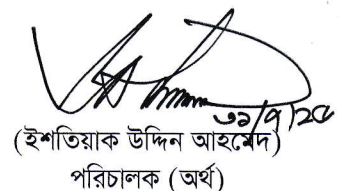 ৩১/৭/২৫
(ইশতিয়াক উদ্দিন আহমেদ)
পরিচালক (অর্থ)